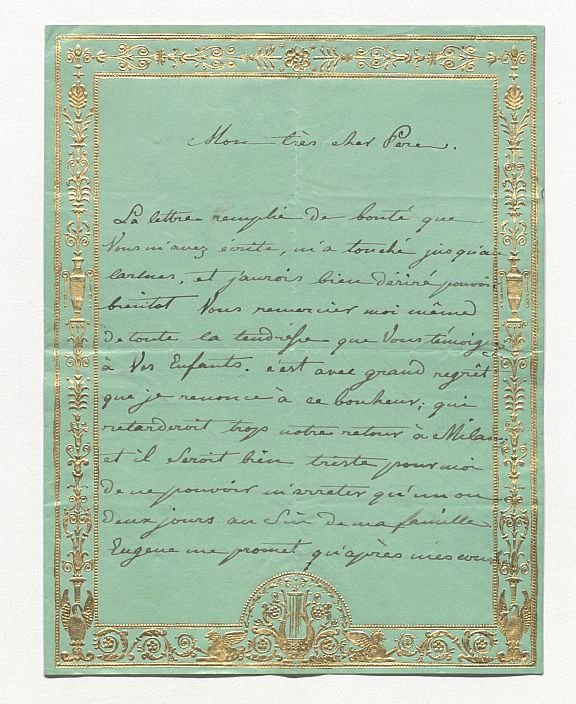 Mon très cher Pere.
La lettre remplie de bonté que
Vous m'avez écrite, m'a touché jusqu'au
larmes, et j'aurois bien désiré pouvoir
bientot Vous remercier moi même
de toute la tendresse que Vous témoignez
à Vos Enfants. c'est avec grand regrêt
que je renonce à ce bonheur; qui
retarderoit trop notre retour à Milan,
et il seroit bien triste pour moi
de ne pouvoir m'arreter qu'un ou
deux jours au Sein de ma famille
Eugene me promet qu'après mes